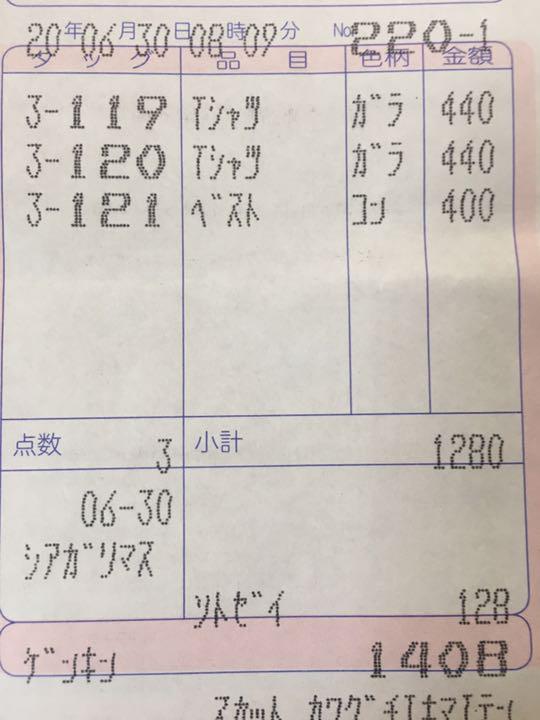 20年06月30日08時09分 No 220-1
タッグ 品目 色柄 金額
3-119 Tシャツ ガラ 440
3-120 Tシャツ ガラ 440
3-121 ベスト コン 400
点数 3 小計 1280
06-30
シアガリマス
ソトゼイ 128
ゲンキン 1408
スカット カワグチエキマエテン